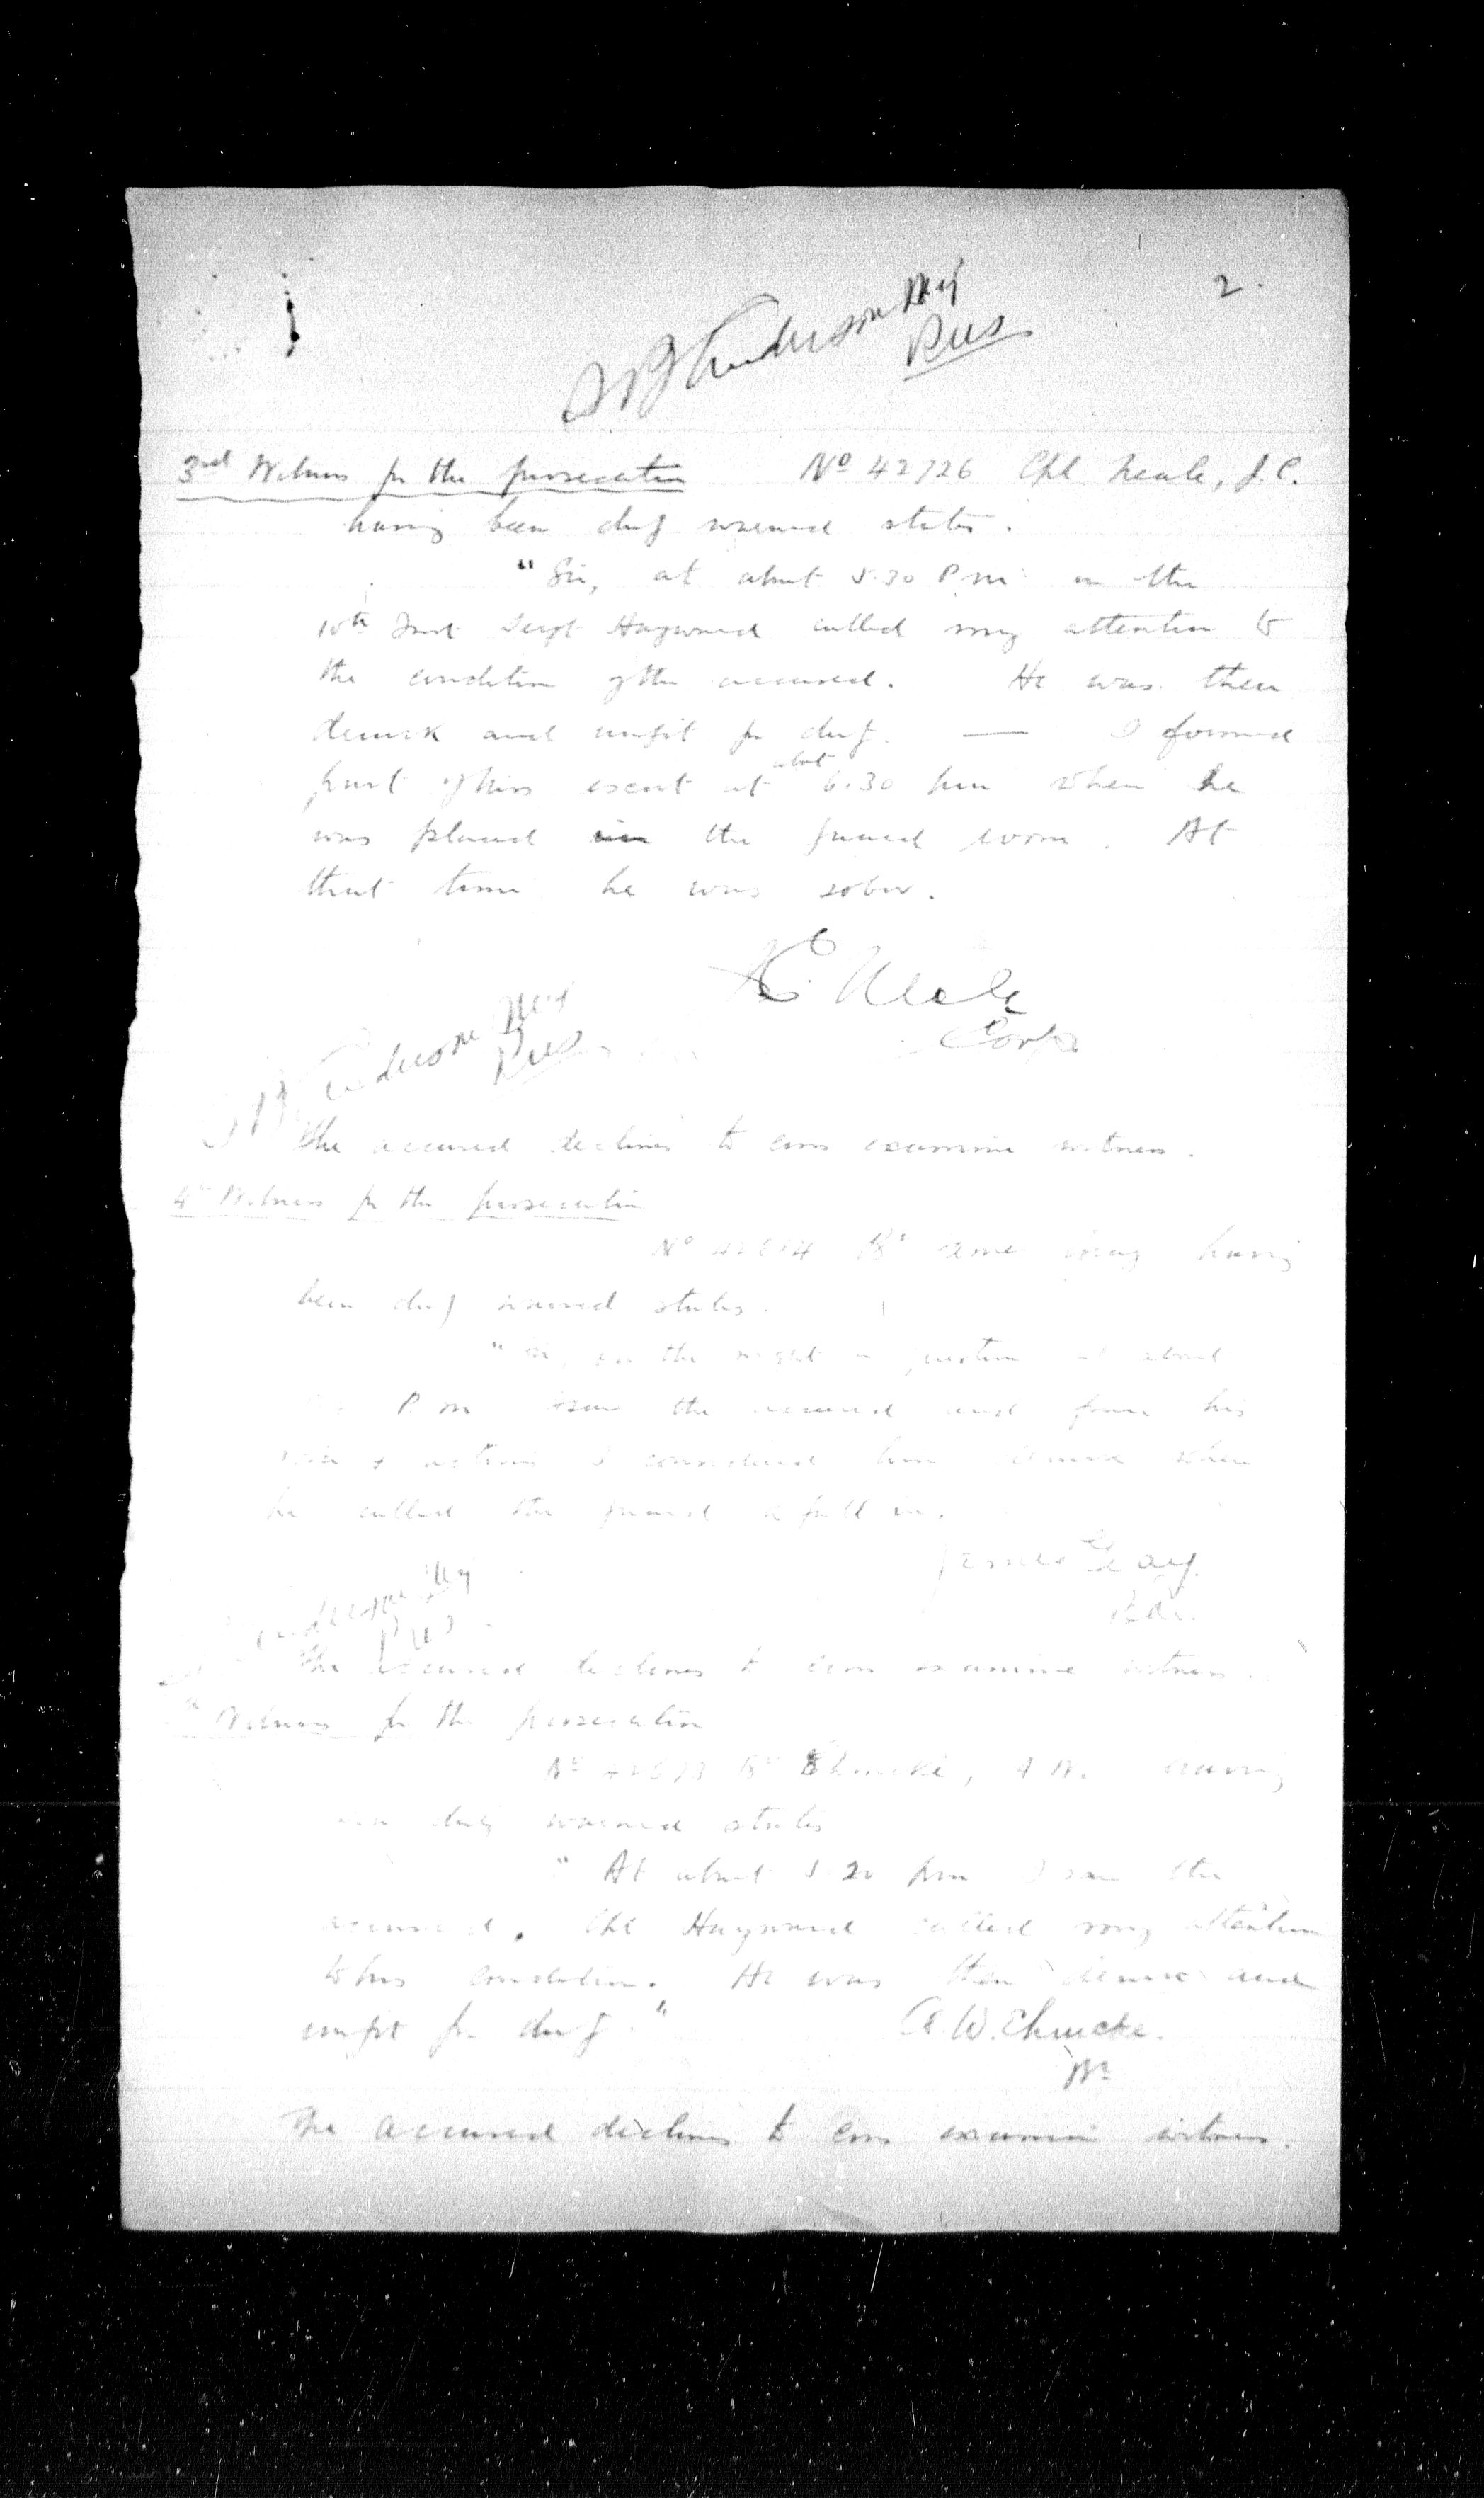 2.
Anderson Maj
Pres
3rd Witness for the prosecution No 42726 Cpl Neale, J.C.
having been duly warned states.
"Sir, at about 5.30 P.m on the
10th Inst Sergt Hayward called my attention to
the condition of the accused. He was then
drunk and unfit for duty. — I formed
part of his escort at about 6.30 pm when he
was placed in the guard room. At
that time he was sober.
JC Neale
Corpl
Anderson Maj
Pres
The accused declines to cross examine witness.
4th Witness for the prosecution
No Br having
been duly warned states.
"Sir, on the night in question at about
P.m I saw the accused and from his
actions I considered him drunk when
he called the guard to fall in.
James Gay.
Bdr.
Anderson Maj
Pres
The accused declines to cross examine witness.
Witness for the prosecution
No Br Ehmcke, A.W. having
been duly warned states
"At about 5.20 pm I saw the
accused. Cpl Hayward called my attention
to his condition. He was then drunk and
unfit for duty." A.W. Ehmcke.
Br
The accused declines to cross examine witness.